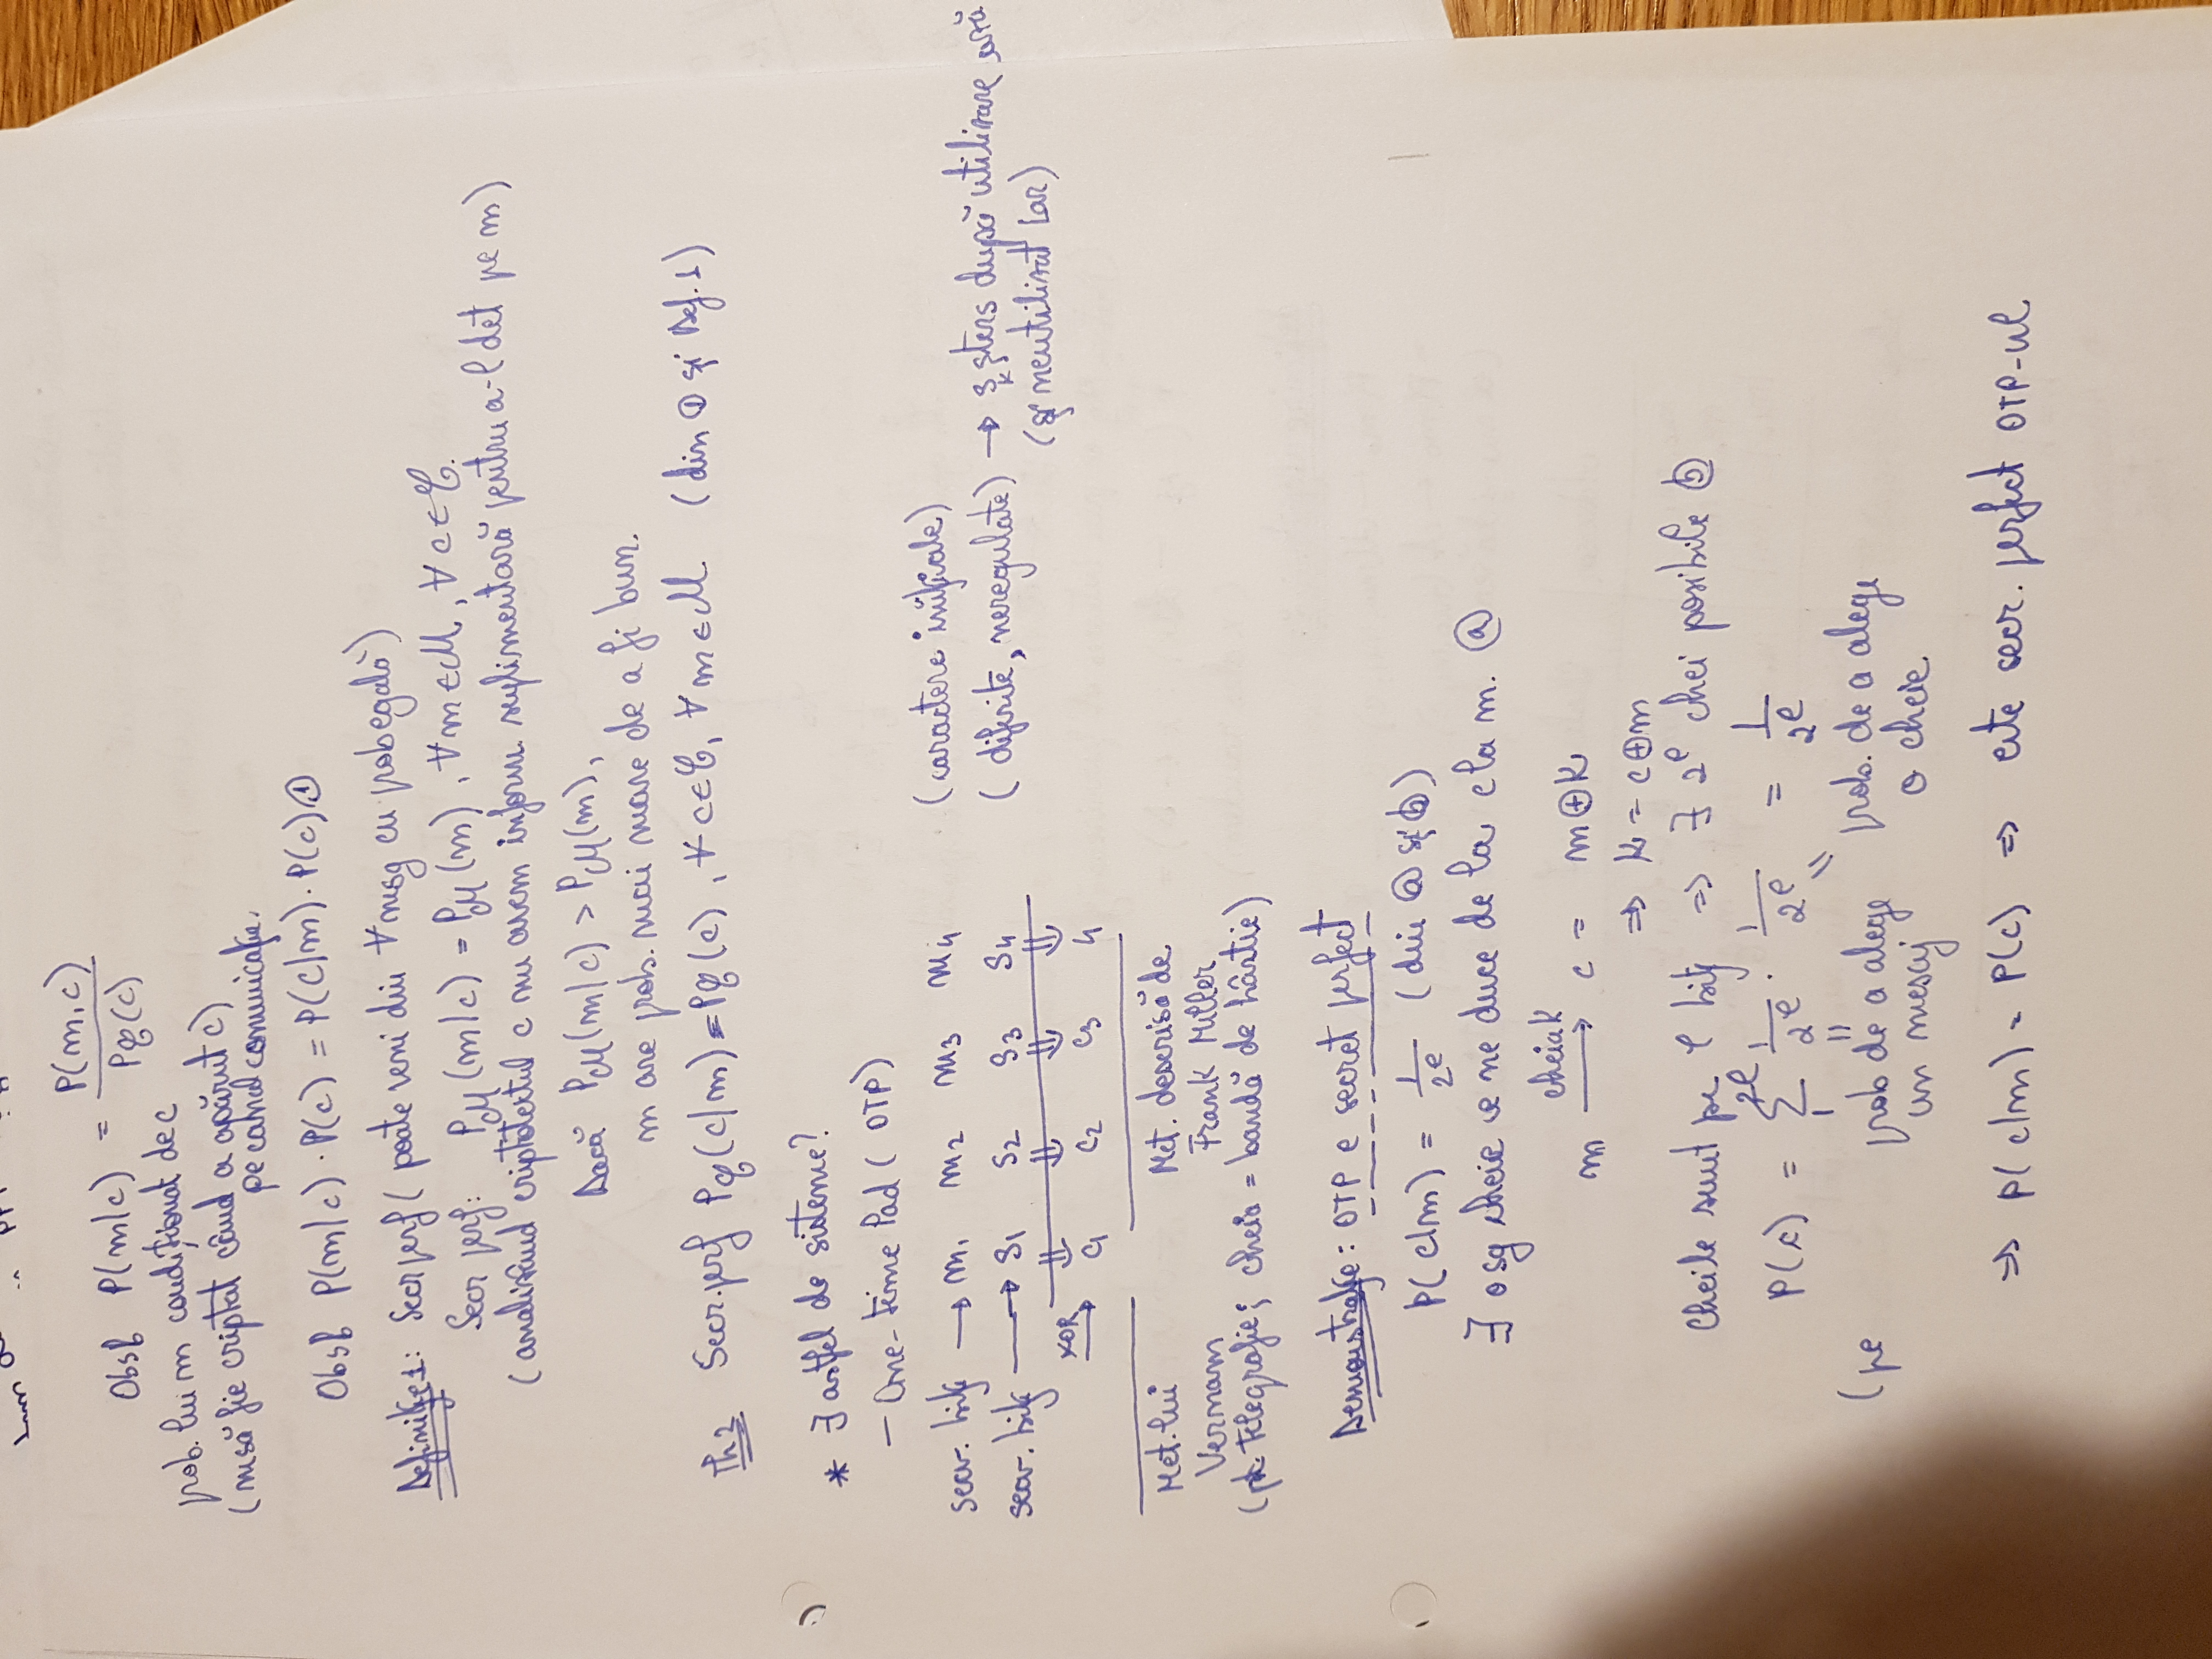 P(m,c)
Obsf P(m/c) = ―――
P𝒞(c)
prob. lui m condiționat de c
(m să fie criptat când a apărut c)
pe canal comunicație.
Obsf P(m/c) · P(c) = P(c/m) · P(c) ①
Definiție 1: Secr perf (poate veni din ∀ msg cu prob egală)
Secr perf: Pℳ(m/c) = Pℳ(m), ∀ m ∈ ℳ, ∀ c ∈ 𝒞.
(analizând criptotextul c nu avem inform. suplimentară pentru a-l det pe m)
Dacă Pℳ(m/c) > Pℳ(m),
m are prob. mai mare de a fi bun.
Th 2 Secr. perf P𝒞(c/m) = P𝒞(c), ∀ c ∈ 𝒞, ∀ m ∈ ℳ (din ① și Def. 1)
* ∃ astfel de sisteme?
– One-time Pad (OTP)
secv. biți → m1 m2 m3 m4 (caractere inițiale)
secv. biți → s1 s2 s3 s4 (diferite, neregulate) → șters după utilizare
(și neutilizat iar)
XOR → c1 c2 c3 4
Met. lui Met. descrisă de
Vernam Frank Miller
(pt. telegrafie; cheia = bandă de hârtie)
Demonstrație: OTP e secret perfect
P(c/m) = 1/2^l (din ⓐ și ⓑ)
∃ o sg cheie ce ne duce de la c la m. ⓐ
cheia K
m → c = m ⊕ K
⇒ K = c ⊕ m
Cheile sunt pe l biți ⇒ ∃ 2^l chei posibile ⓑ
P(c) = Σ_1^{2^l} 1/2^l · 1/2^l = 1/2^l
(pe prob de a alege prob. de a alege
un mesaj o cheie
⇒ P(c/m) = P(c) ⇒ este secr. perfect OTP-ul